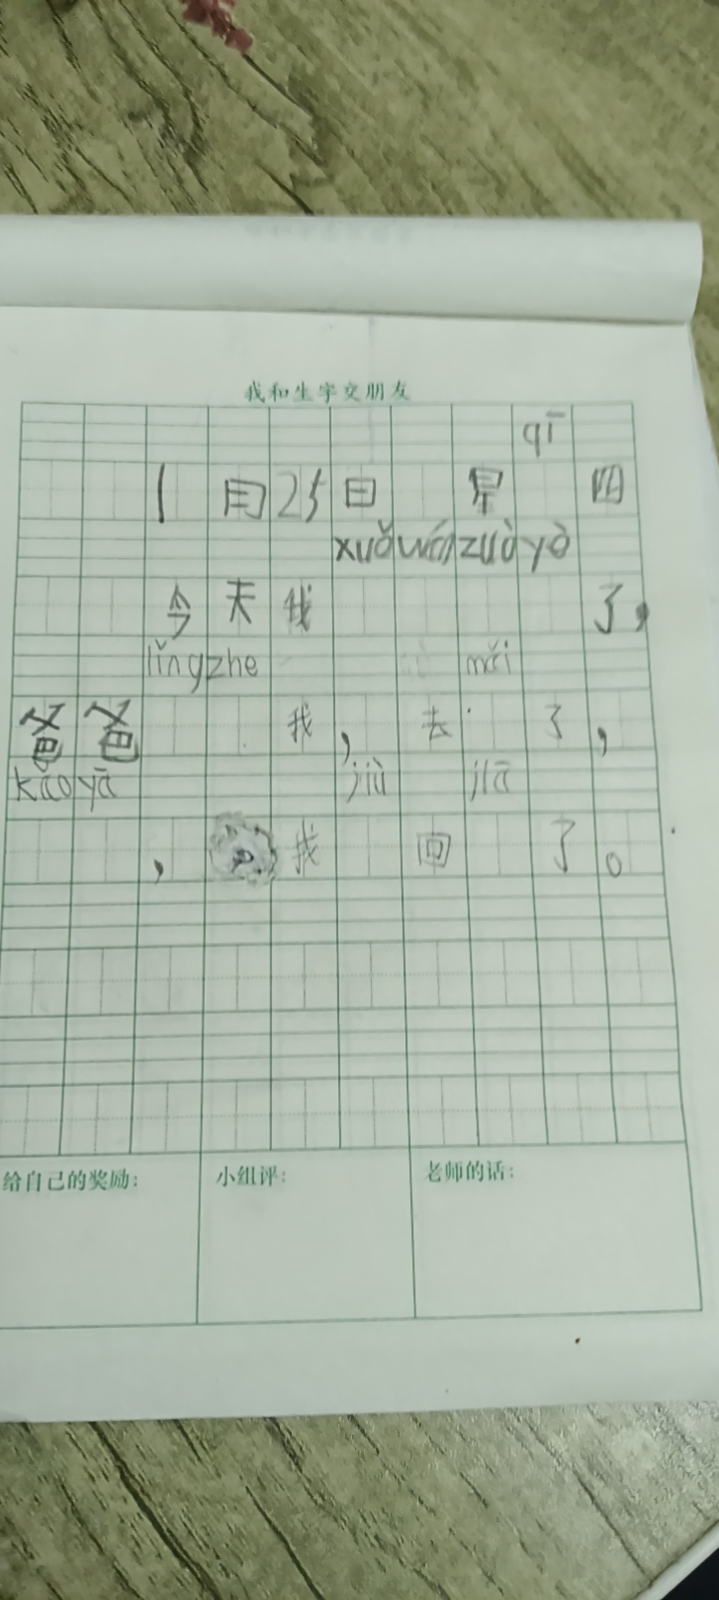 我和生字交朋友
qī
1月25日 星 四
xuě wán zuò yè
今天我 了，
lǐng zhe mǎi
爸爸 我，去 了，
kǎo yā jiù jiā
，我 回 了。
给自己的奖励： 小组评： 老师的话：